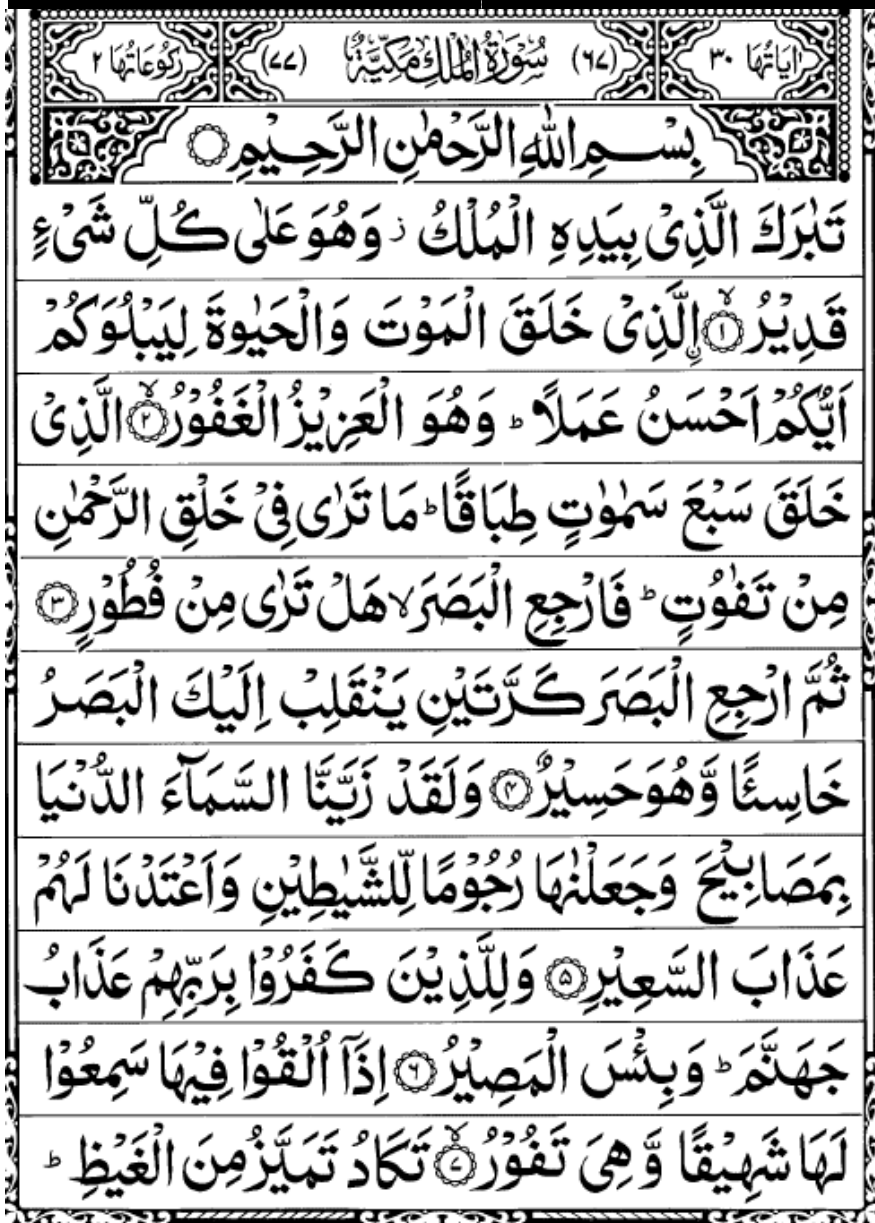 اٰيَاتُهَا ٣٠ (٦٧) سُوْرَةُ الْمُلْكِ مَكِّيَّةٌ (٧٧) رُكُوْعَاتُهَا ٢
بِسْمِ اللّٰهِ الرَّحْمٰنِ الرَّحِيْمِ ۝
تَبٰرَكَ الَّذِىْ بِيَدِهِ الْمُلْكُ ز وَهُوَ عَلٰى كُلِّ شَىْءٍ
قَدِيْرُ ۙ﴿١﴾ اۨلَّذِىْ خَلَقَ الْمَوْتَ وَالْحَيٰوةَ لِيَبْلُوَكُمْ
اَيُّكُمْ اَحْسَنُ عَمَلًا ؕ وَهُوَ الْعَزِيْزُ الْغَفُوْرُ ۙ﴿٢﴾ الَّذِىْ
خَلَقَ سَبْعَ سَمٰوٰتٍ طِبَاقًا ؕ مَا تَرٰى فِىْ خَلْقِ الرَّحْمٰنِ
مِنْ تَفٰوُتٍ ؕ فَارْجِعِ الْبَصَرَ ۙ هَلْ تَرٰى مِنْ فُطُوْرٍ ﴿٣﴾
ثُمَّ ارْجِعِ الْبَصَرَ كَرَّتَيْنِ يَنْقَلِبْ اِلَيْكَ الْبَصَرُ
خَاسِئًا وَّهُوَ حَسِيْرٌ ﴿٤﴾ وَلَقَدْ زَيَّنَّا السَّمَآءَ الدُّنْيَا
بِمَصَابِيْحَ وَجَعَلْنٰهَا رُجُوْمًا لِّلشَّيٰطِيْنِ وَاَعْتَدْنَا لَهُمْ
عَذَابَ السَّعِيْرِ ﴿٥﴾ وَلِلَّذِيْنَ كَفَرُوْا بِرَبِّهِمْ عَذَابُ
جَهَنَّمَ ؕ وَبِئْسَ الْمَصِيْرُ ﴿٦﴾ اِذَآ اُلْقُوْا فِيْهَا سَمِعُوْا
لَهَا شَهِيْقًا وَّهِىَ تَفُوْرُ ۙ﴿٧﴾ تَكَادُ تَمَيَّزُ مِنَ الْغَيْظِ ؕ